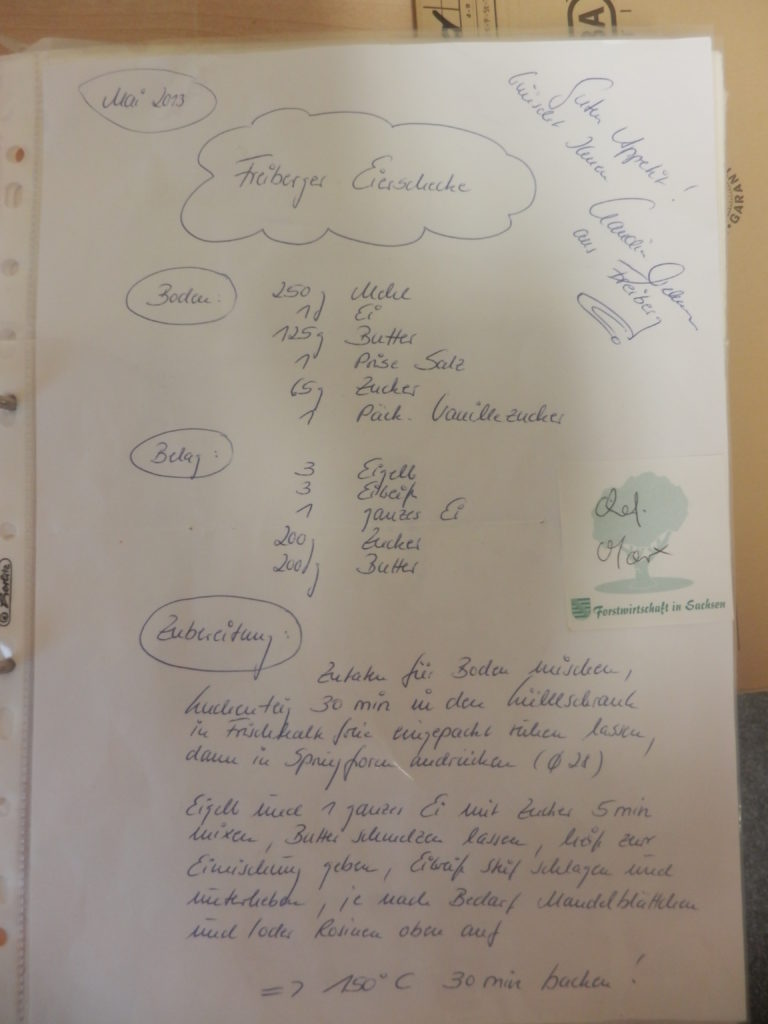 Mai 2013
Guten Appetit!
wünscht Ihnen
Claudia
aus Freiberg
Freiberger Eierschecke
Boden:
250g Mehl
1 Ei
125g Butter
1 Prise Salz
65g Zucker
1 Päck. Vanillezucker
Belag:
3 Eigelb
3 Eiweiß
1 ganzes Ei
200g Zucker
200g Butter
Forstwirtschaft in Sachsen
Zubereitung:
Zutaten für Boden mischen,
Kuchenteig 30 min in den Kühlschrank
in Frischhaltefolie eingepackt ruhen lassen,
dann in Springform andrücken (Ø 28)
Eigelb und 1 ganzes Ei mit Zucker 5 min
mixen, Butter schmelzen lassen, heiß zur
Eimischung geben, Eiweiß steif schlagen und
unterheben, je nach Bedarf Mandelblättchen
und/oder Rosinen oben auf
=> 150°C 30 min backen!
GARAN